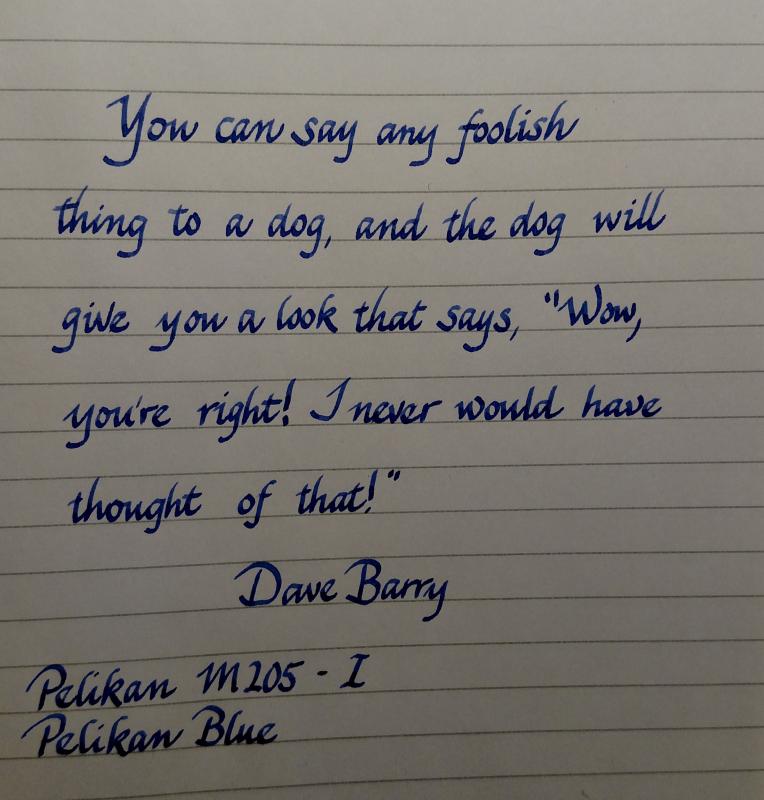 You can say any foolish
thing to a dog, and the dog will
give you a look that says, "Wow,
you're right! I never would have
thought of that!"
Dave Barry
Pelikan M205 - I
Pelikan Blue